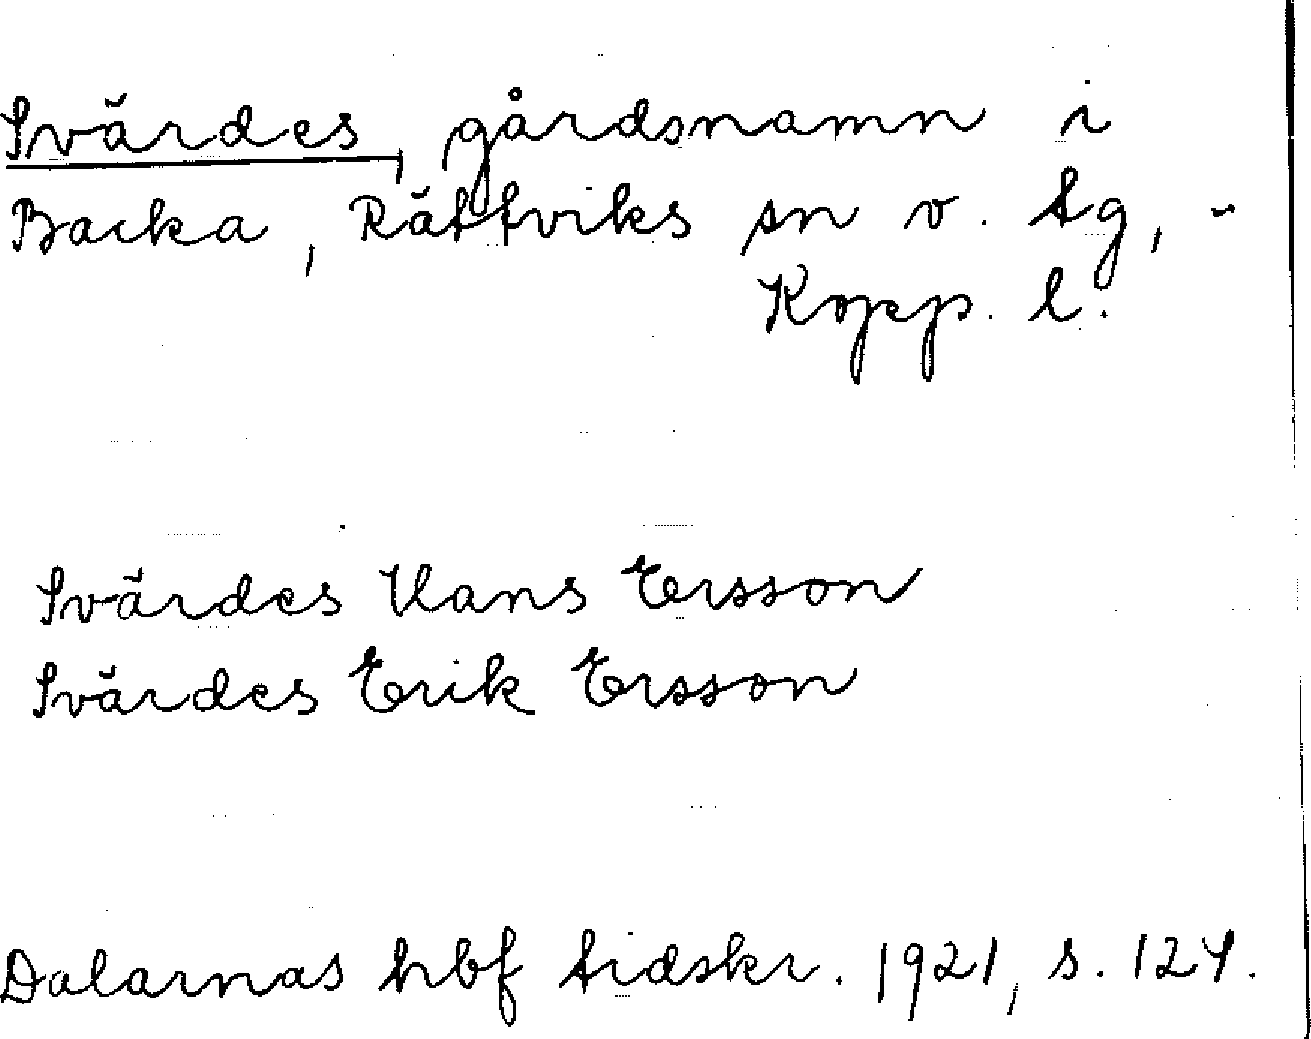 Svärdes, gårdsnamn i
Backa, Rättviks sn o. tg,
Kopp. l.
Svärdes Hans Ersson
Svärdes Erik Ersson
Dalarnas hbf tidskr. 1921, s. 124.